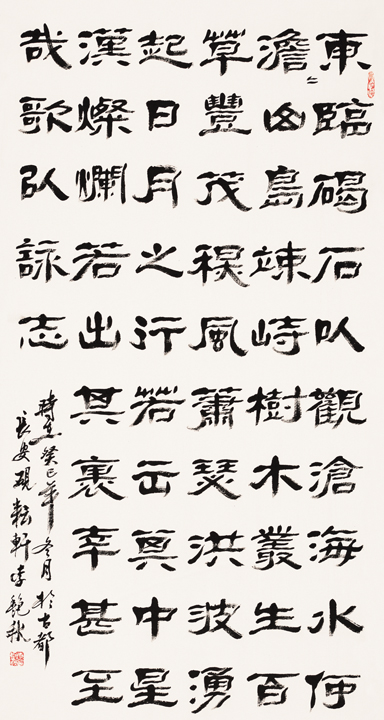 東臨碣石以觀滄海水何
澹〻山島竦峙樹木叢生百
草豐茂秋風蕭瑟洪波湧
起日月之行若出其中星
漢燦爛若出其裏幸甚至
哉歌以詠志
時在癸巳年冬月於古都
長安硯耘軒李秋